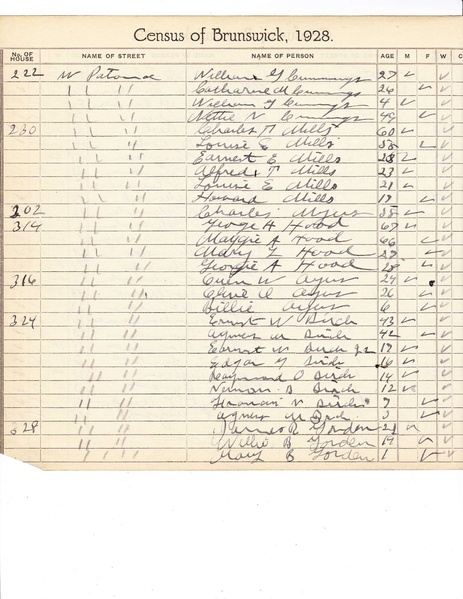 Census of Brunswick, 1928.
No. OF HOUSE NAME OF STREET NAME OF PERSON AGE M F W C
222 W Potomac William Cummings 27
" " Catharine M Cummings 26
" " William Cummings 4
" " Nettie V Cummings 48
230 " " Charles T Mills 60
" " Louise E Mills
" " Earnest E Mills
" " Alfred T Mills 23
" " Louise E Mills 21
" " Howard Mills
202 " " Charles Myers
314 " " George H Hood 67
" " Maggie A Hood 66
" " Mary E Hood
" " Georgie A Hood
316 " " W 24
" " 26
" " Billie 6
324 " " Ernest W Birch 43
" " Agnes M Birch 42
" " Earnest W Birch Jr
" " Edgar Birch 16
" " Raymond O Birch 14
" " Vernon Birch 12
" " Birch
" " Agnes M Birch 3
328 " " James R Gorden 21
" " Willie B Gorden 19
" " Mary B Gorden 1